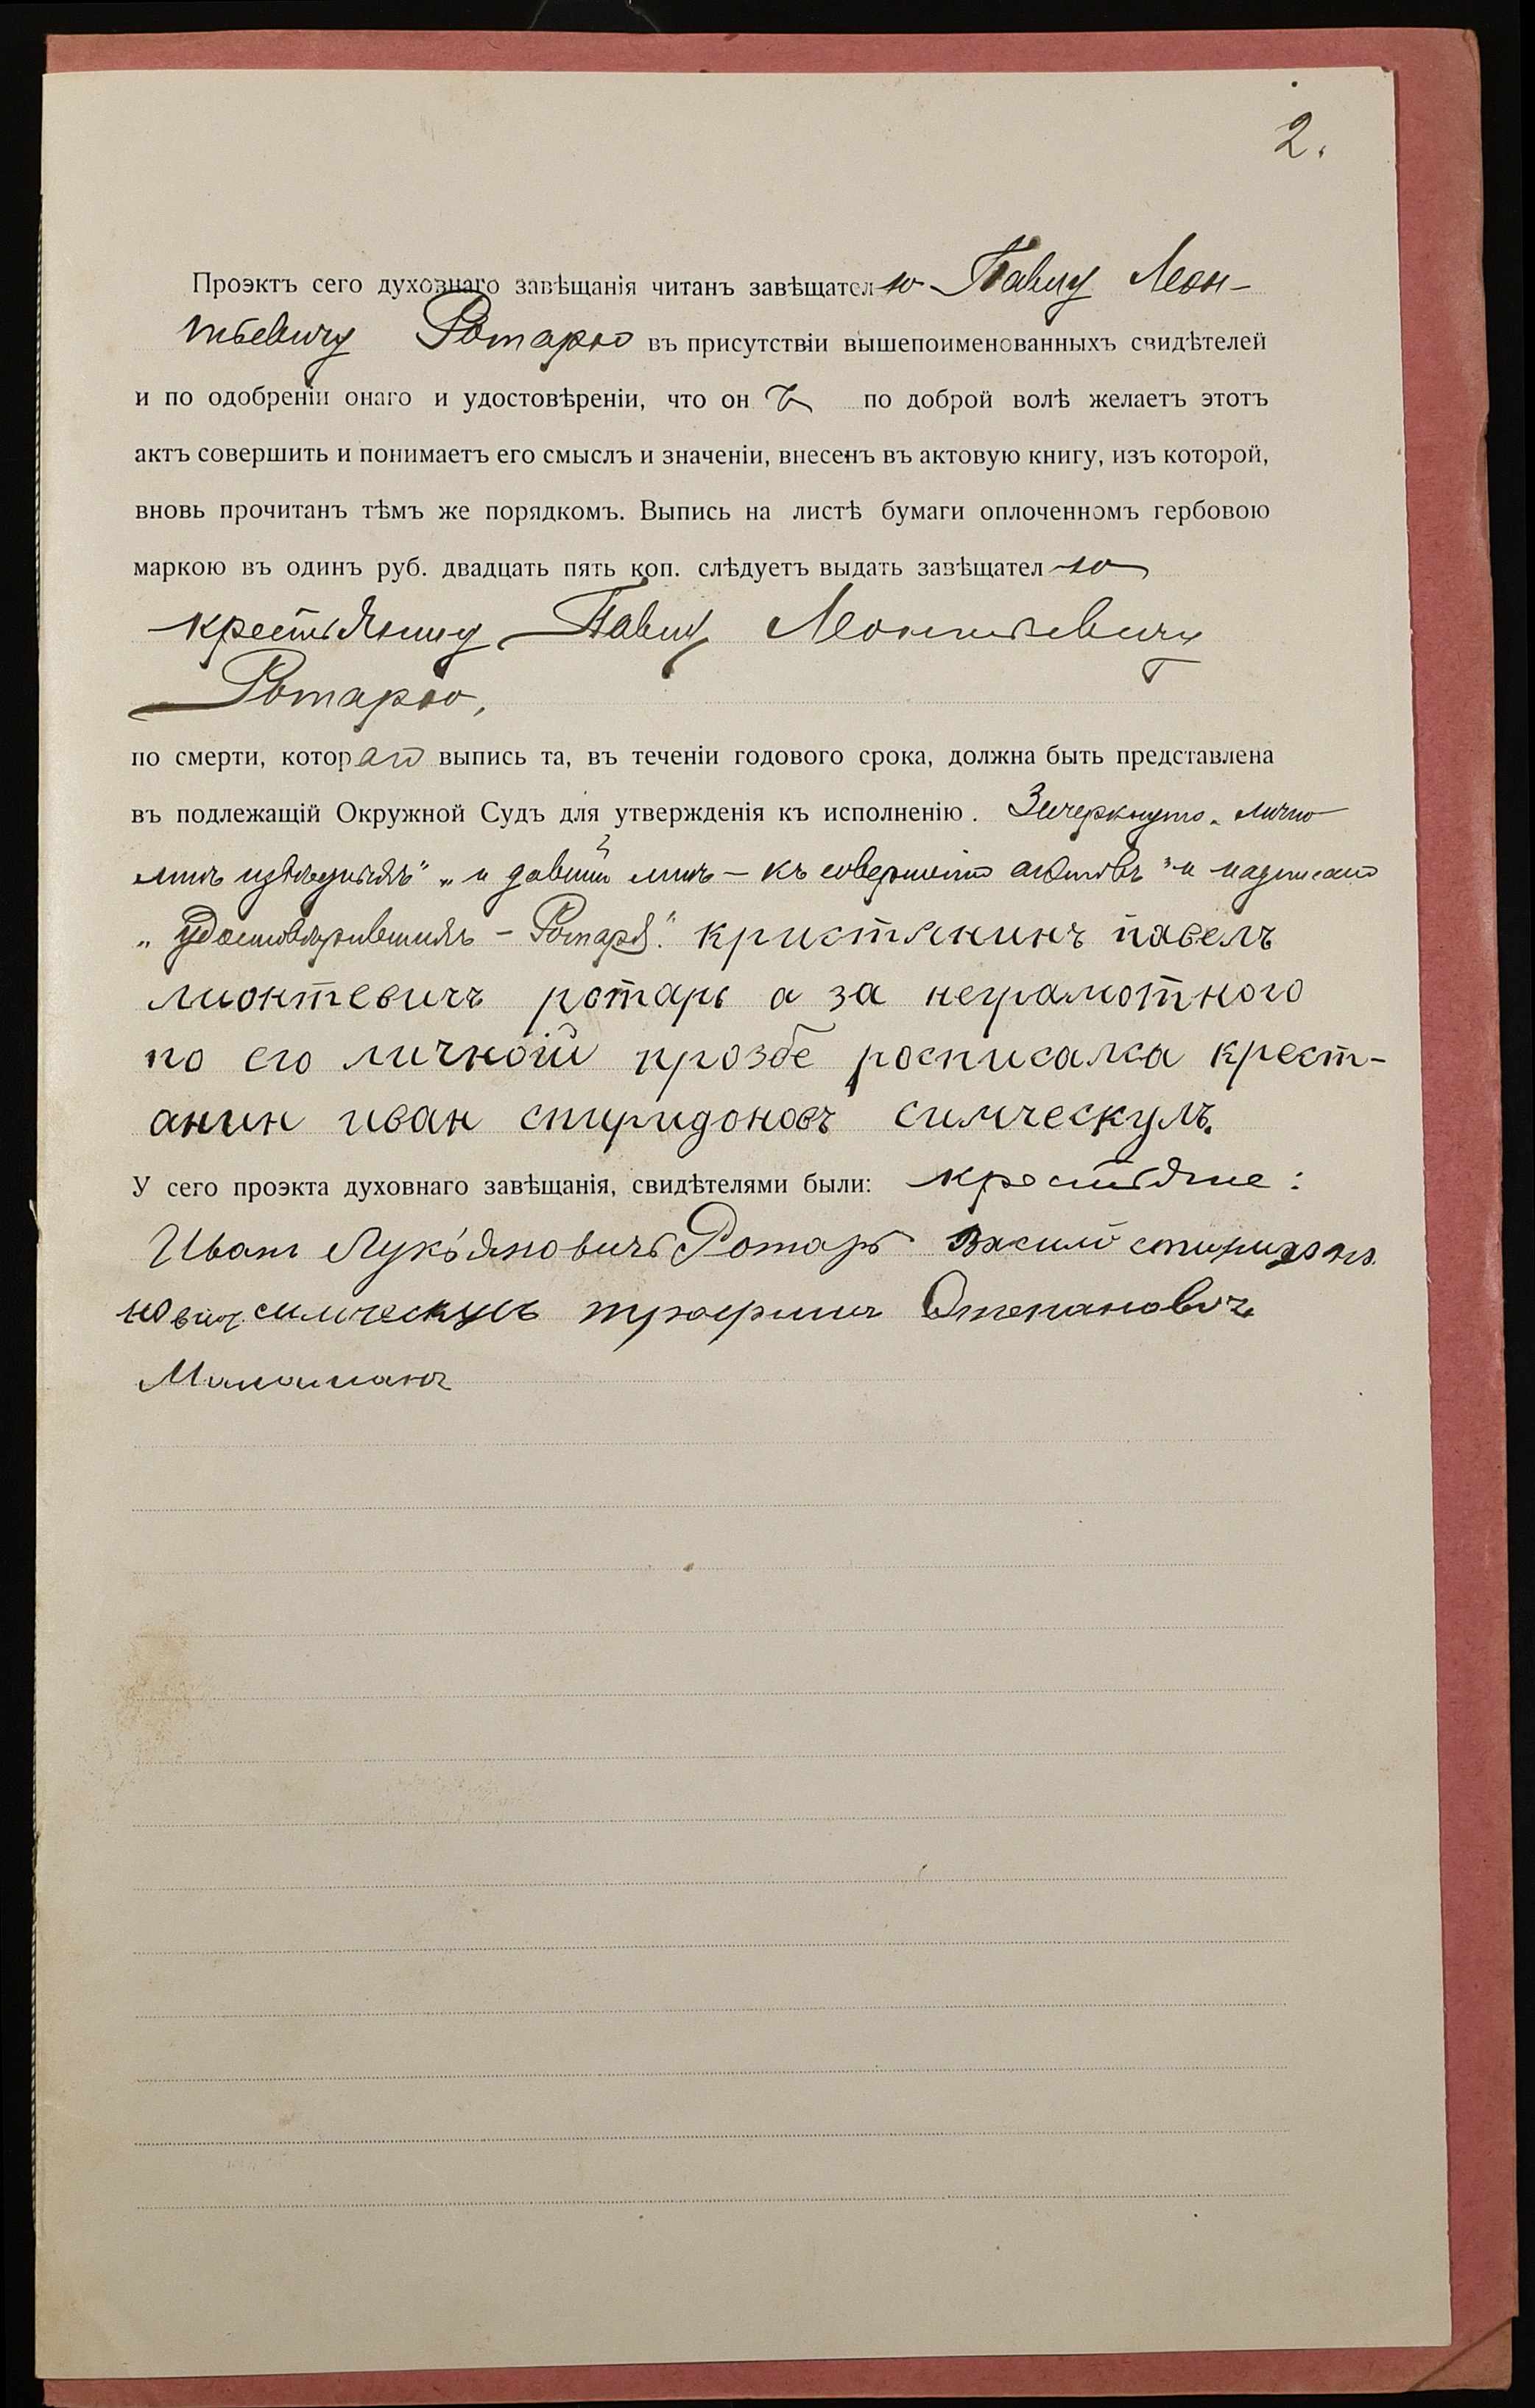 2.
Проэктъ сего духовнаго завѣщанія читанъ завѣщателю Павлу Леон-
тьевичу Ротарю въ присутствіи вышепоименованныхъ свидѣтелей
и по одобреніи онаго и удостовѣреніи, что онъ по доброй волѣ желаетъ этотъ
актъ совершить и понимаетъ его смыслъ и значеніи, внесенъ въ актовую книгу, изъ которой,
вновь прочитанъ тѣмъ же порядкомъ. Выпись на листѣ бумаги оплоченномъ гербовою
маркою въ одинъ руб. двадцать пять коп. слѣдуетъ выдать завѣщателю
крестьянину Павлу Леонтьевичу
Ротарю,
по смерти, котораго выпись та, въ теченіи годового срока, должна быть представлена
въ подлежащій Окружной Судъ для утвержденія къ исполненію. Зачеркнуто „лично
мнѣ извѣстныхъ" „и давшій мнѣ – къ совершенію актовъ" и надписано
„удостовѣрившихъ – Ротаря". кристянинъ павелъ
лионтевичъ ротарь а за неграмотного
по его личной прозбе росписалса крест-
анин иван спиридоновъ симческулъ.
У сего проэкта духовнаго завѣщанія, свидѣтелями были: крестьяне:
Иванъ Лукьяновичъ Ротарь Василий спиридоно
нович симческулъ трофимъ Степановичъ